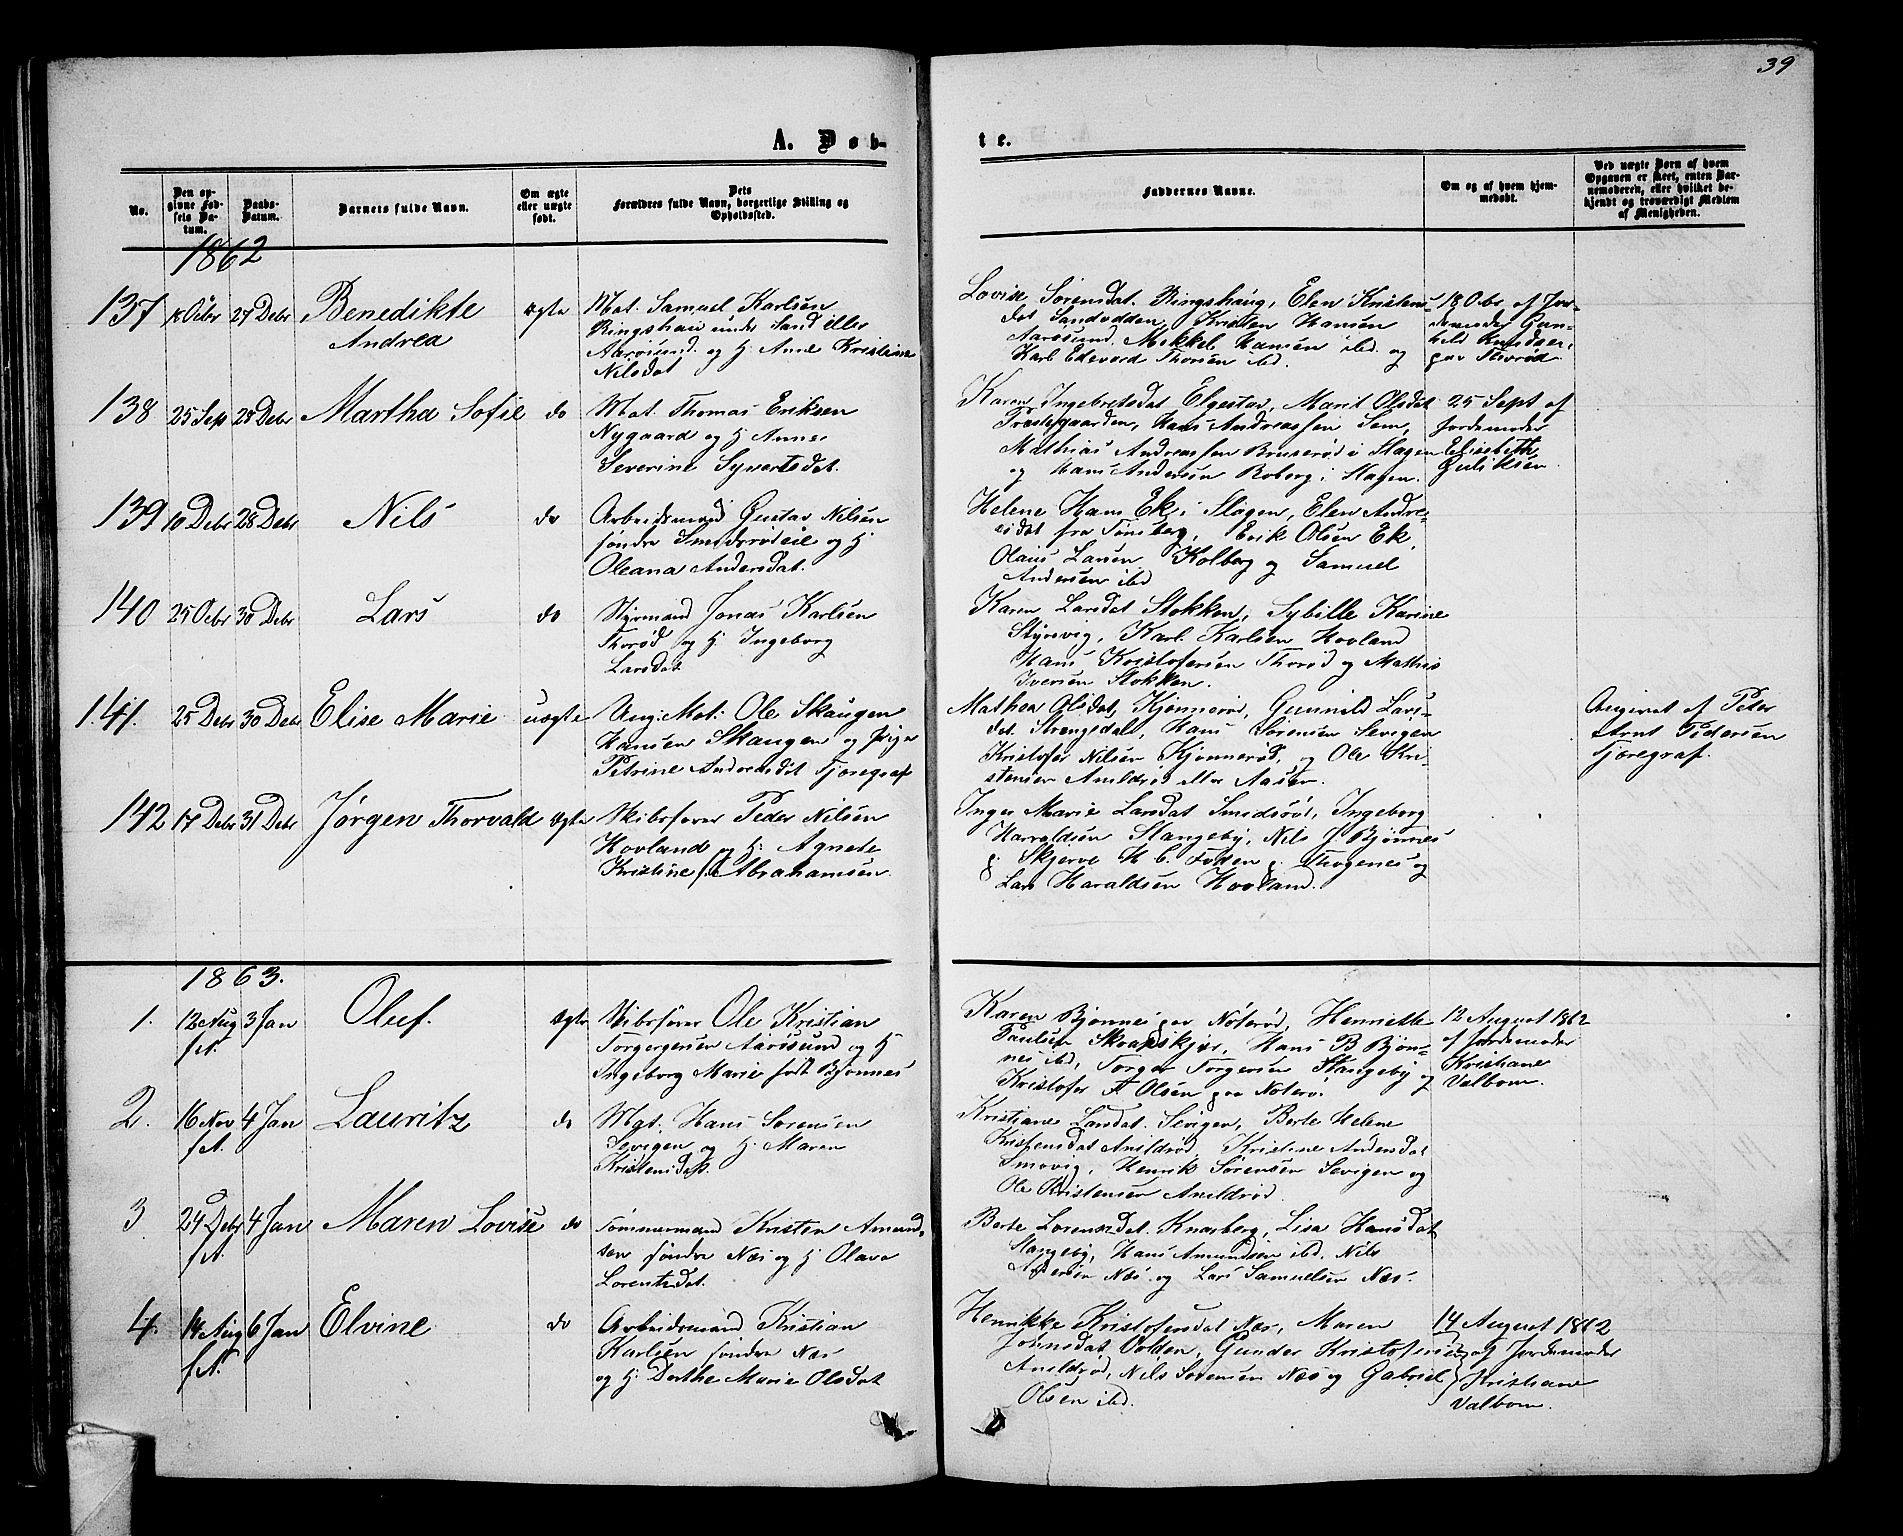 39
A. Døb-
te.
No.
Den op-
givne Fød-
sels Da-
tum.
Daabs-
Datum.
Barnets fulde Navn.
Om ægte
eller uægte
født.
Dets
Forældres fulde Navn, borgerlige Stilling og
Opholdssted.
Faddernes Navne.
Om og af hvem hjem-
medøbt.
Ved uægte Børn af hvem
Opgaven er skeet, enten Bar-
nemoderen, eller hvilket be-
kjendt og troværdigt Medlem
af Menigheden.
1862
137
18 Octbr
27 Debr
Benedikte
Andrea
ægte
Mat. Samuel Karlsen
Ringshau under Sand eller
Aarøsund. og h. Anne Kristine
Nilsdat
Lovise Sørensdat. Ringshaug, Elen Kristens-
dat Sandodden, Kristen Hansen
Aarøsund. Mikkel Hansen ibd. og
Karl Edevard Thorsen ibd.
18 Octbr. af Jor-
demoder Gun-
hild Knudsen,
paa Thorød
138
25 Sep
28 Debr
Martha Sofie
do
Mat. Thomas Eriksen
Nygaard og h. Anne
Severine Syvertsdat.
Karen Ingebretsdat Elgestad, Marit Olsdat
Præstegaarden, Hans Andreassen Sem,
Mathias Andreassen Bruserød i Slagen
og Hans Andersen Roberg i Slagen.
25 Sept af
Jordemoder
Elisabeth
Guliksen.
139
10 Debr
28 Debr
Nils
do
Arbeidsmand Gustav Nilsen
søndre Smidsrødeie og h.
Oleana Andersdat.
Helene Hans Ek i Slagen, Elen Andre-
asdat fra Tønsberg, Erik Olsen Ek,
Olaus Larsen Kolberg og Samuel
Andersen ibd
140
25 Octbr
30 Debr
Lars
do
Styrmand Jonas Karlsen
Thorød og h. Ingeborg
Larsdat
Karen Larsdat Stokken, Sybille Karine
Styrsvig, Karl Karlsen Hovland
Hans Kristofersen Thorød og Mathis
Iversen Stokken.
141.
25 Debr
30 Debr
Elise Marie
uægte
Ung. Mat. Ole Skaugen
Hansen Skaugen og Pige
Petrine Andreasdat Fjæregraf
Mathea Olsdat, Kjønnerød, Gunnild Lars-
dat. Strengsdal, Hans Sørensen Sevigen
Kristofer Nilsen Kjønnerød, og Ole Kri-
stensen Arnildrød eller Aasen.
Angivet af Peter
Arnt Pedersen
Fjæregraf.
142
17 Debr
31 Debr
Jørgen Thorvald
ægte
Skibsfører Peder Nilsen
Hovland og h. Agnete
Kristine f. Abrahamsen.
Inger Marie Larsdat Smidsrød, Ingeborg
Harraldsen Stangeby, Nils J Bjønnes
p. Skjerve H C. Foden p. Thogenes og
Lars Haraldsen Hovland.
1863.
1.
12 Aug
f.A.
3 Jan
Oluf.
ægte
Skibsfører Ole Kristian
Torgersen Aarøsund og h
Ingeborg Marie født Bjønnes
Karen Bjønnes paa Nøterød, Henriette
Paulsen Skvandskjær, Hans B Bjøn-
nes ibd, Torger Torgersen Stangeby og
Kristofer A Olsen paa Noterø.
12 August 1862
af Jordemoder
Kristiane
Valbom.
2.
16 Nov
f.A.
4 Jan
Lauritz
do
Mat. Hans Sørensen
Sevigen og h. Maren
Kristensdat.
Kristiane Larsdat. Sevigen, Berte Helene
Kristensdat Arnildrød, Kristine Andersdat
Smovig, Henrik Sørensen Sevigen og
Ole Kristensen Arnildrød.
3
24 Debr
f.A.
4 Jan
Maren Lovise
do
Tømmermand Kristen Amund-
sen søndre Næs og h Olava
Lorentsdat.
Berte Lorensdat. Knarberg, Lisa Hansdat
Stangeby, Hans Amundsen ibd. Nils
Andersen Næs. og Lars Samuelsen Næs.
4.
14 Aug
f.A.
6 Jan
Elvine
do
Arbeidsmand Kristian
Karlsen søndre Næs
og h. Dorthe Marie Olsdat
Henrikke Kristofersdat Næs, Maren
Johnsdat, Volden, Gunder Kristofersen
Arnildrød, Nils Sørensen Næs og Gabriel
Olsen ibd.
14 August 1862
af Jordemoder
Kristiane
Valbom.